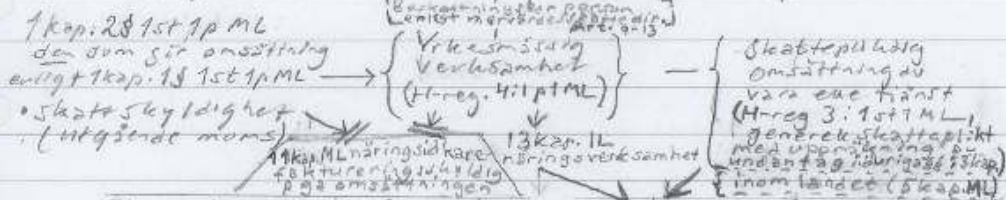 1 kap. 2§ 1st 1p ML
den som gör omsättning
enligt 1kap. 1§ 1st 1p ML
• skattskyldighet
(utgående moms)
Beskattningsbar person
enligt mervärdesskattedir.
Art. 9-13
Yrkesmässig
verksamhet
(H-reg. 4:1 p1 ML)
11 kap. ML näringsidkare
faktureringsskyldig
pga omsättningen
13 kap. IL
näringsverksamhet
Skattepliktig
omsättning av
vara eller tjänst
(H-reg 3:1st 1 ML,
generell skatteplikt
med uppräkning av
undantag i övriga §§ i 3 kap.)
inom landet (5 kap. ML)